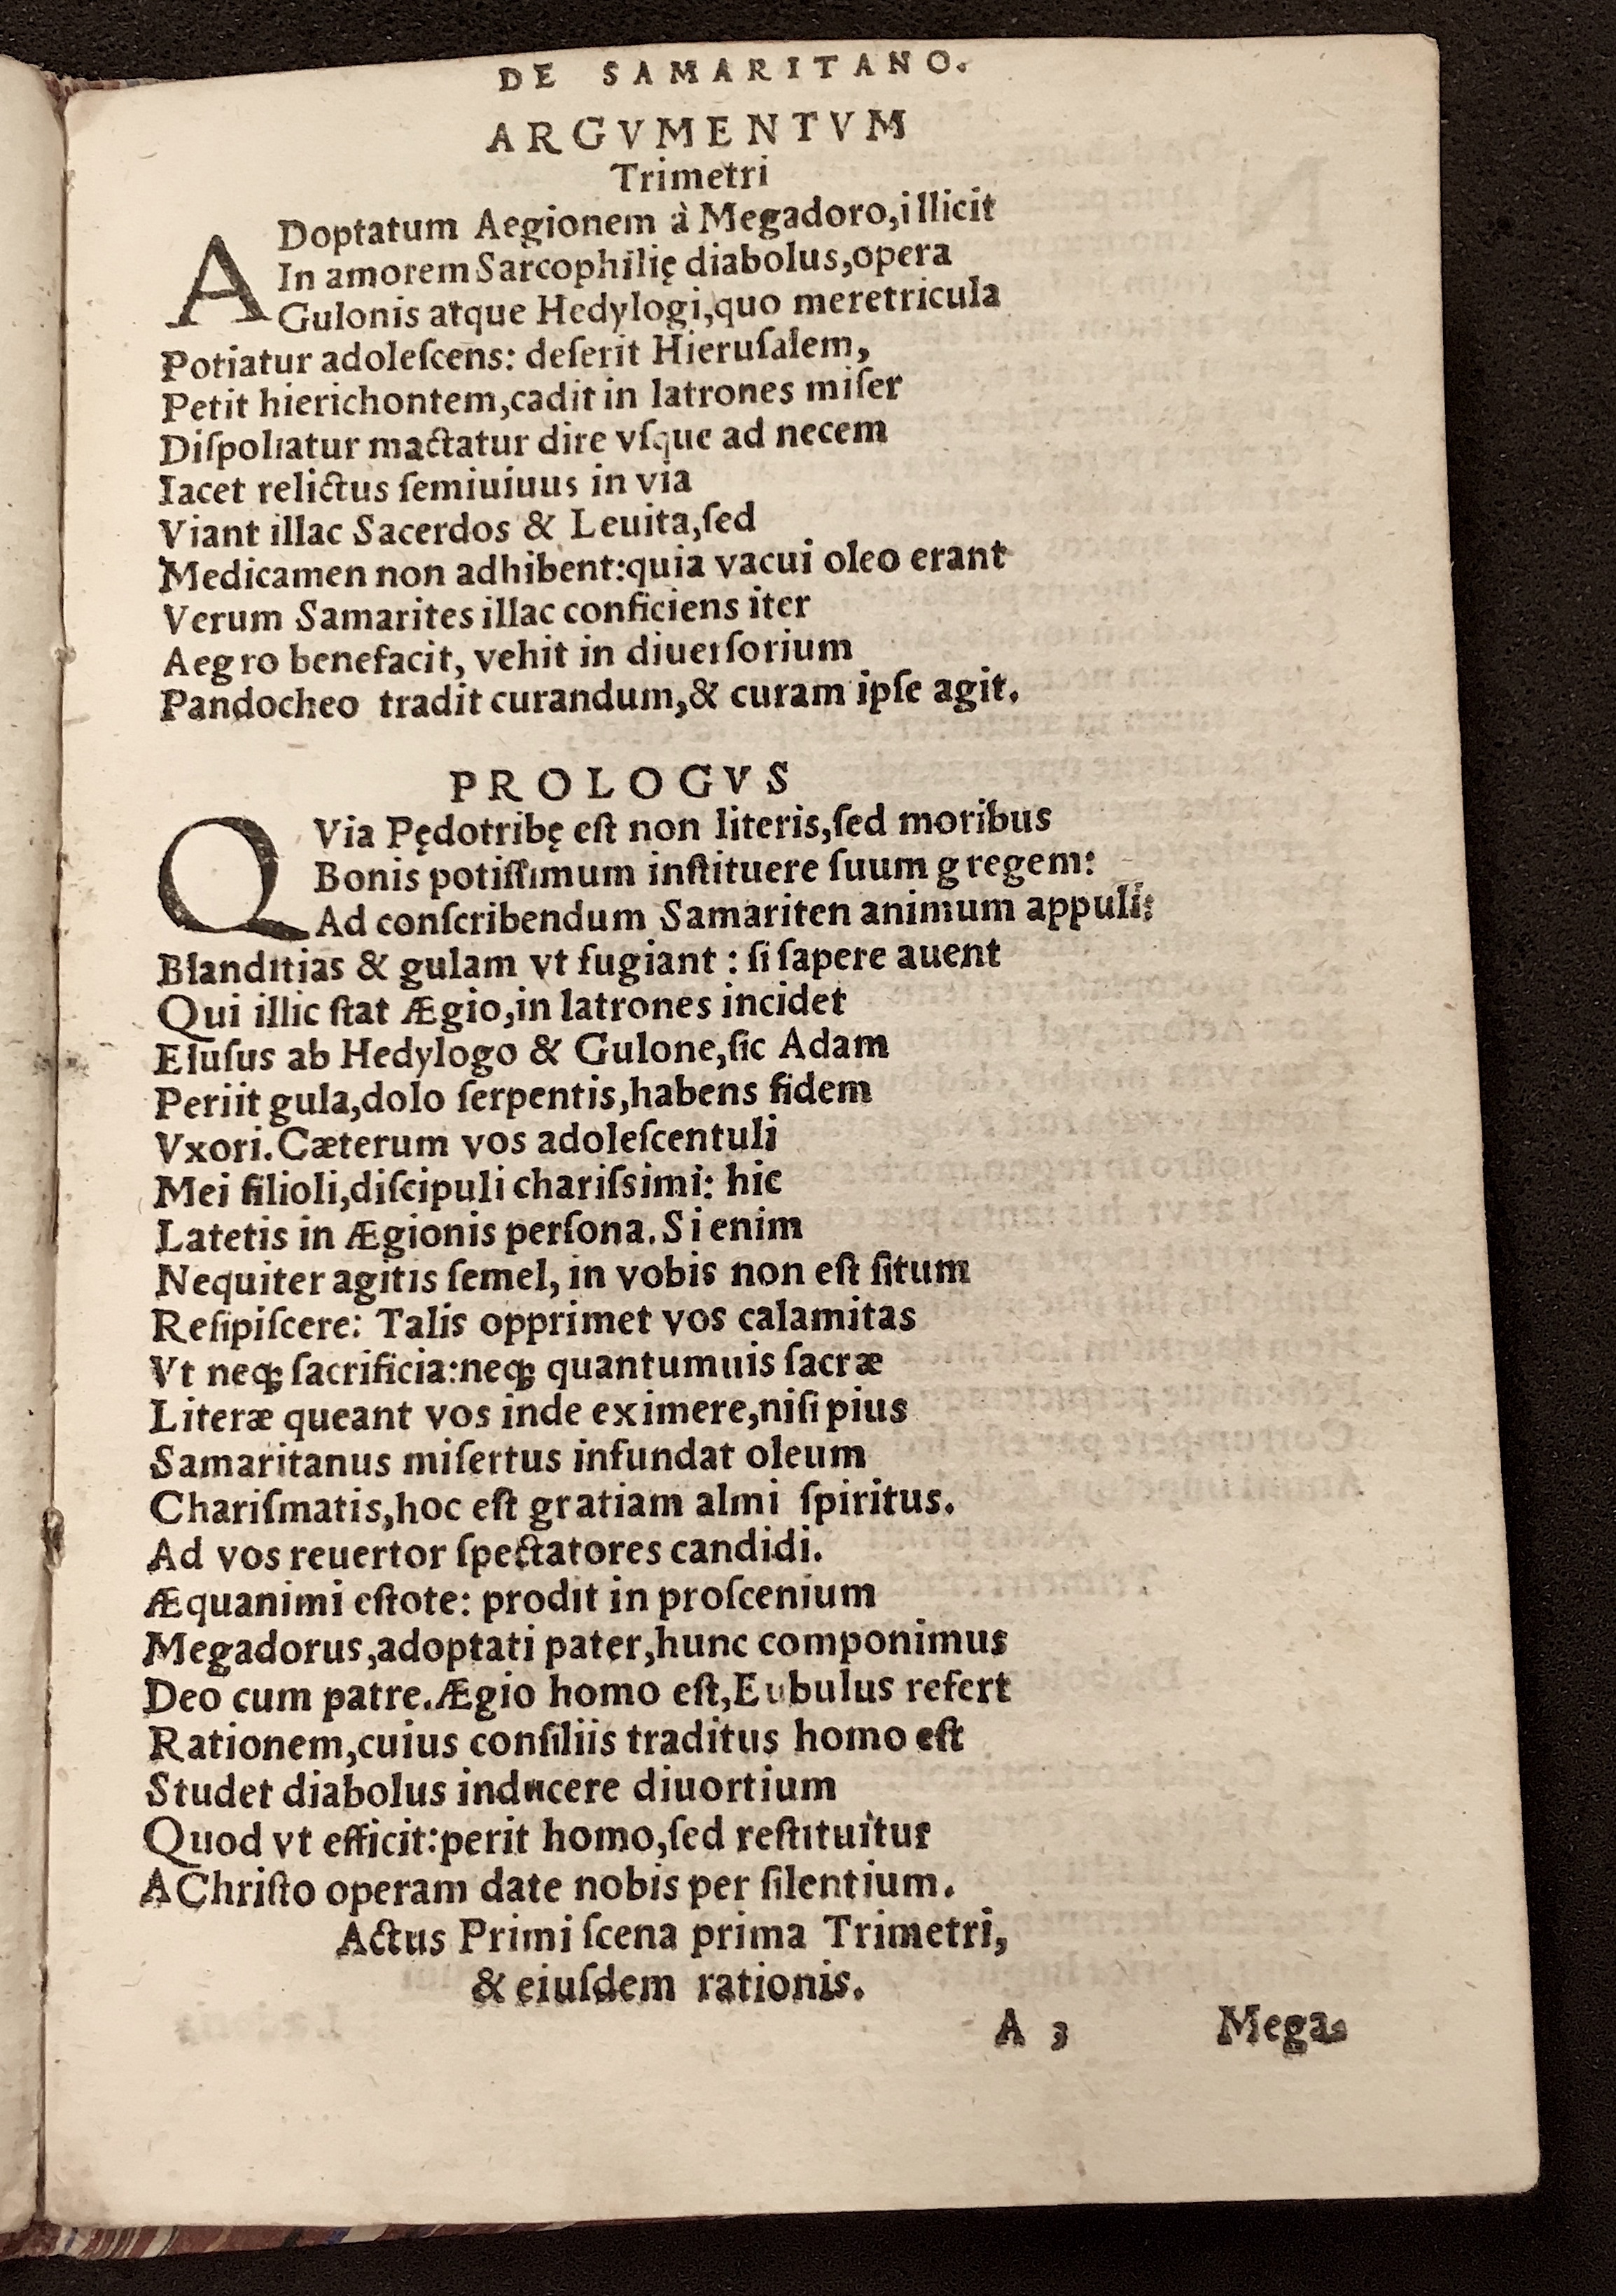 DE SAMARITANO.
ARGVMENTVM
Trimetri
ADoptatum Aegionem à Megadoro,illicit
In amorem Sarcophilię diabolus,opera
Gulonis atque Hedylogi,quo meretricula
Potiatur adoleſcens: deſerit Hieruſalem,
Petit hierichontem,cadit in latrones miſer
Diſpoliatur mactatur dire vſque ad necem
Iacet relictus ſemiuiuus in via
Viant illac Sacerdos & Leuita,ſed
Medicamen non adhibent:quia vacui oleo erant
Verum Samarites illac conficiens iter
Aegro benefacit, vehit in diuerſorium
Pandocheo tradit curandum,& curam ipſe agit.
PROLOGVS
QVia Pędotribę eſt non literis,ſed moribus
Bonis potiſſimum inſtituere ſuum gregem:
Ad conſcribendum Samariten animum appuli:
Blanditias & gulam vt fugiant : ſi ſapere auent
Qui illic ſtat Ægio,in latrones incidet
Eluſus ab Hedylogo & Gulone,ſic Adam
Periit gula,dolo ſerpentis,habens fidem
Vxori. Cæterum vos adoleſcentuli
Mei filioli,diſcipuli chariſsimi: hic
Latetis in Ægionis perſona. Si enim
Nequiter agitis ſemel, in vobis non eſt ſitum
Reſipiſcere: Talis opprimet vos calamitas
Vt neqꝫ ſacrificia:neqꝫ quantumuis ſacræ
Literæ queant vos inde eximere,niſi pius
Samaritanus miſertus infundat oleum
Chariſmatis,hoc eſt gratiam almi ſpiritus.
Ad vos reuertor ſpectatores candidi.
Æquanimi eſtote: prodit in proſcenium
Megadorus,adoptati pater,hunc componimus
Deo cum patre.Ægio homo eſt,Eubulus refert
Rationem,cuius conſiliis traditus homo eſt
Studet diabolus inducere diuortium
Quod vt efficit:perit homo,ſed reſtituitur
A Chriſto operam date nobis per ſilentium.
Actus Primi ſcena prima Trimetri,
& eiuſdem rationis.
A 3 Mega-